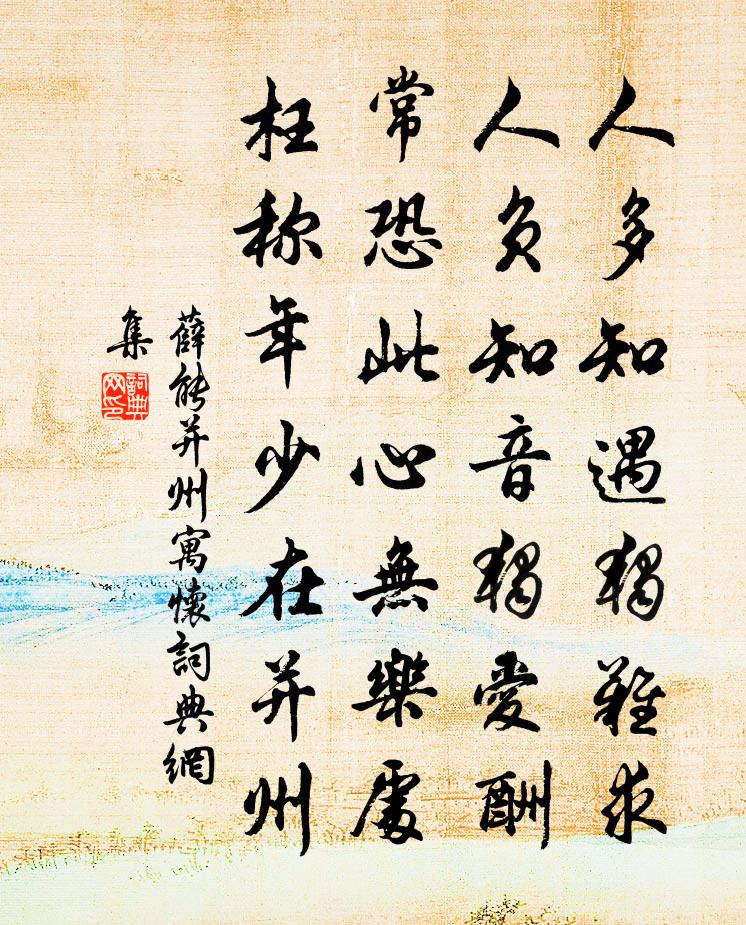 人多知遇独難求
人負知音独愛酬
常恐此心無樂處
枉称年少在并州
薛能并州寓懷詞典網
集
詞典
网印